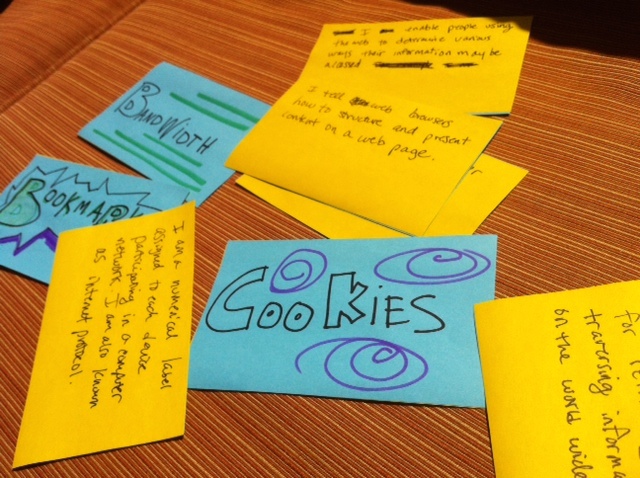 I enable people using
the web to determine various
ways their information may be
I tell web browsers
how to structure and present
content on a web page.
BANDWIDTH
BOOKMAR
COOKIES
I am a numerical label
assigned to each device
participating in a computer
network. I am also known
as internet protocol.
for
traversing informa
on the world wide